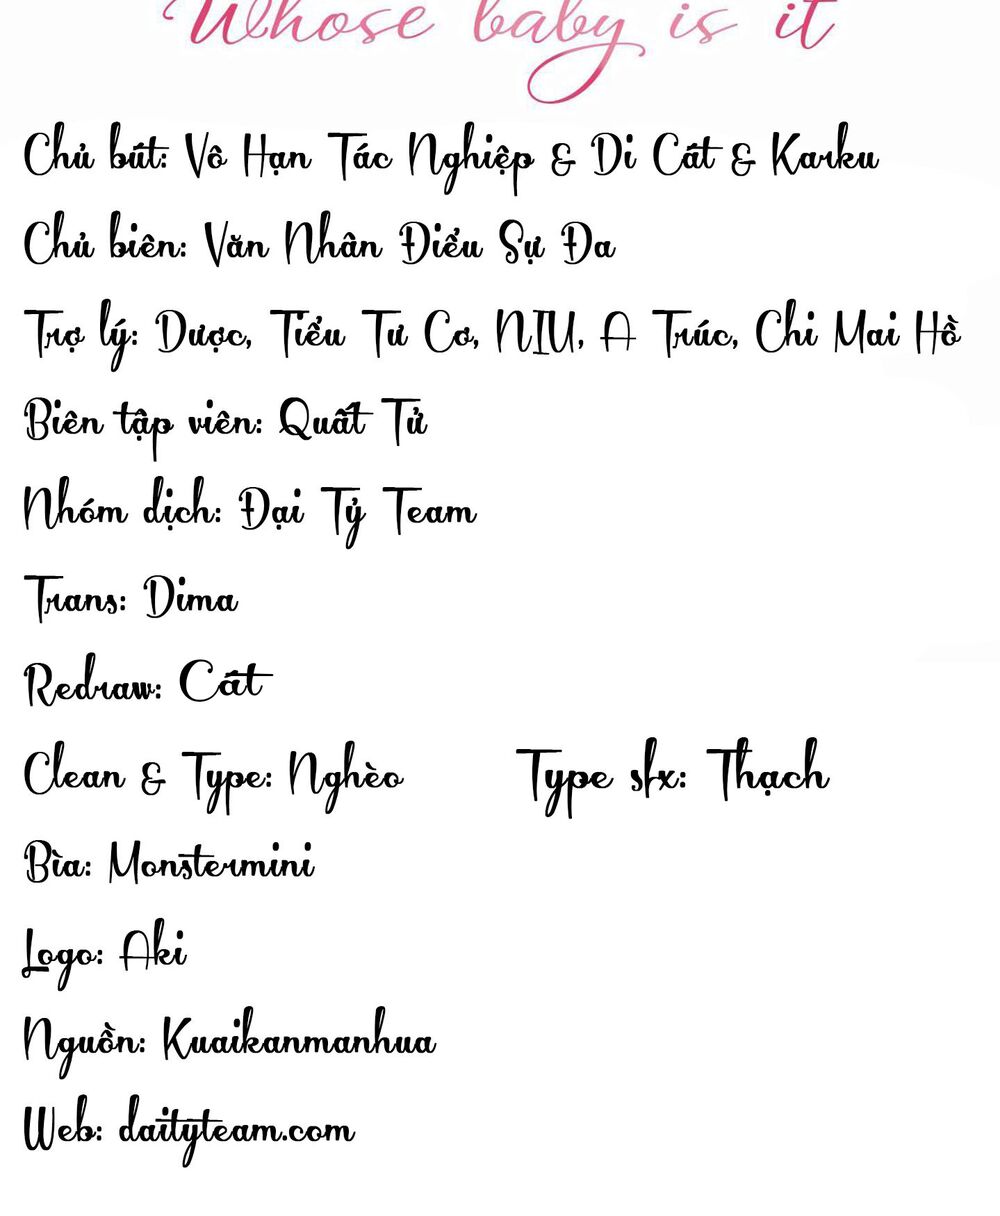 Whose baby is it
Chủ bút: Vô Hạn Tác Nghiệp & Di Cát & Karku
Chủ biên: Văn Nhân Điểu Sự Đa
Trợ lý: Dược, Tiểu Tư Cơ, NIU, A Trúc, Chi Mai Hồ
Biên tập viên: Quất Tử
Nhóm dịch: Đại Tỷ Team
Trans: Dima
Redraw: Cát
Clean & Type: Nghèo Type sfx: Thạch
Bìa: Monstermini
Logo: Aki
Nguồn: Kuaikanmanhua
Web: daityteam.com